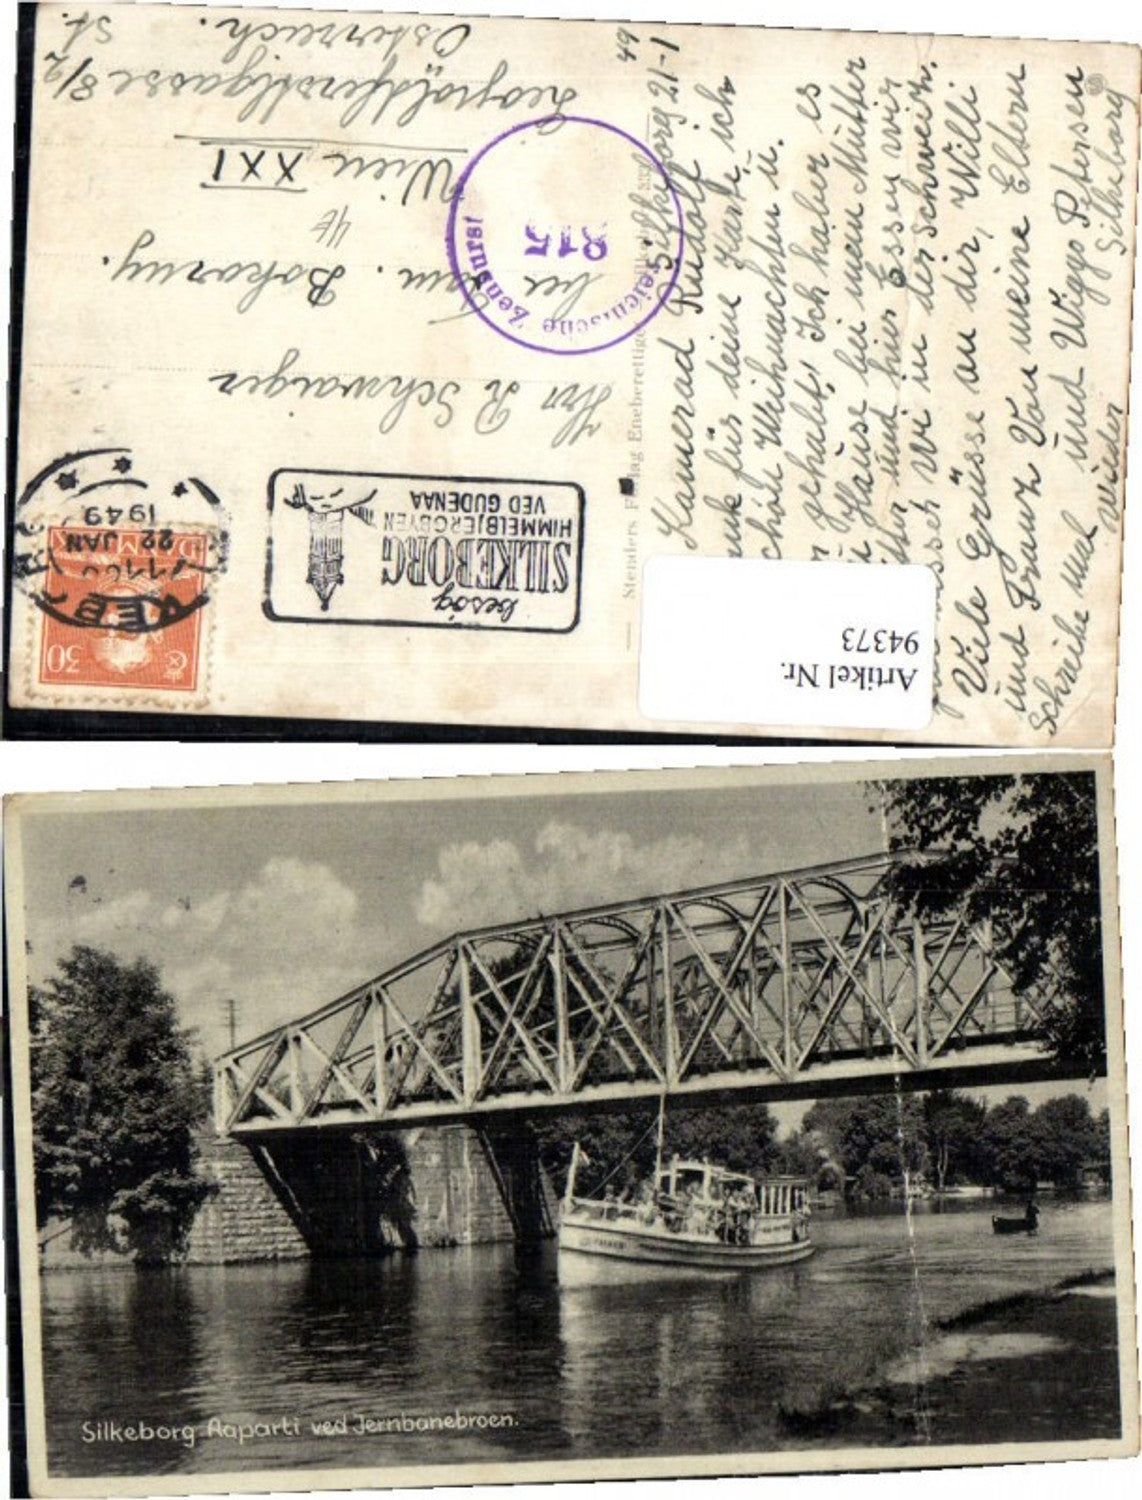 Silkeborg 21-1
49
Kamerad Rudolf ich
für deine Karte, ich
Weihnachten u.
gehabt! Ich haber es
Hause bei mein Mutter
und hier Essen wir
wi in der Schweiz.
Viele Grüsse an dir, Willi
und Franz Von meine Eltern
und Wiggo Petersen
Schreibe mal wieder
Silkeborg
Stenders Forlag Eneberettiget
Hrr R Schwaiger
bei Fam. Bokorny.
4E
Wien XXI
Leopoldferstlgasse 8/2
St.
Österreich.
Zensurst
815
besøg
SILKEBORG
HIMMELBJERGBYEN
VED GUDENAA
22 JAN
1949
30
Artikel Nr.
94373
Silkeborg Aaparti ved Jernbanebroen.